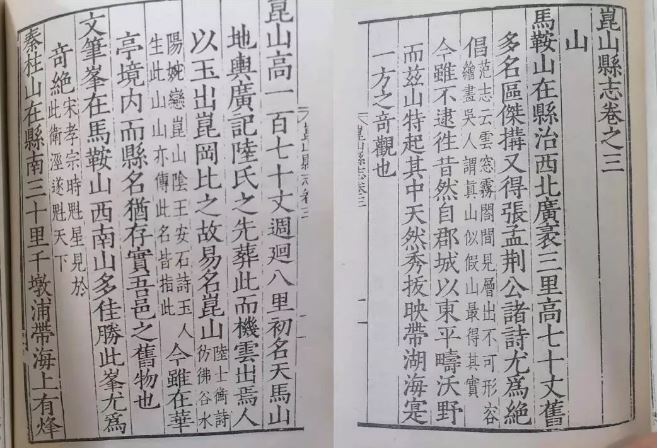 崑山縣志卷之三
山
馬鞍山在縣治西北廣袤三里高七十丈舊
多名區傑搆又得張孟荆公諸詩尤爲絶
倡范志云雲窓霧閣間見層出不可形容繪畫吳人謂真山似假山最得其實
今雖不逮徃昔然自郡城以東平疇沃野
而兹山特起其中天然秀拔映帶湖海寔
一方之奇觀也
崑山縣志卷三
崑山縣志卷三
崑山高一百七十丈週廻八里初名天馬山
地輿廣記陸氏之先葬此而機雲出焉人
以玉出崑岡比之故易名崑山陸士衡詩彷彿谷水
陽婉孌崑山陰王安石詩玉人生此山山亦傳此名皆指此今雖在華
亭境内而縣名猶存實吾邑之舊物也
文筆峯在馬鞍山西南山多佳勝此峯尤爲
奇絶宋孝宗時魁星見於此衛涇遂魁天下
秦柱山在縣南三十里千墩浦帶海上有烽